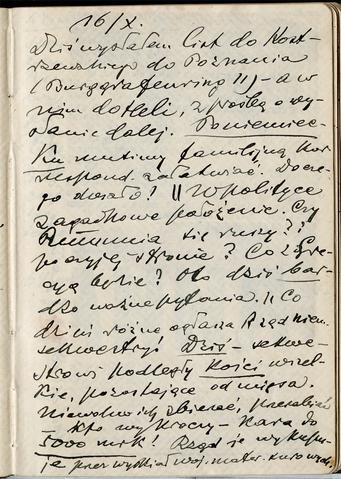 16/X.
Dziś wysłałem list do Kost-
rzewskiego do Poznania
(Burggrafenring 11) – a w
nim do Heli, z prośbą o wy-
słanie dalej. Po niemiec-
ku musimy familijną kor-
respond. załatwiać. Do cze-
go doszło! || W polityce
zagadkowe położenie. Czy
Rumunia się ruszy??
po czyjej stronie? Co z Gre-
cyą będzie? Oto dziś bar-
dzo ważne pytania. || Co
dzień różne ogłasza Rząd niem.
sekwestry! Dziś – sekwe-
strowi podległy kości wszel-
kie, pozostające od mięsa.
Niewolno ich zbierać, przerabiać
– kto wykroczy – kara do
5000 mrk! Rząd je wykupu-
je przez wydział woj. mater. surowych.